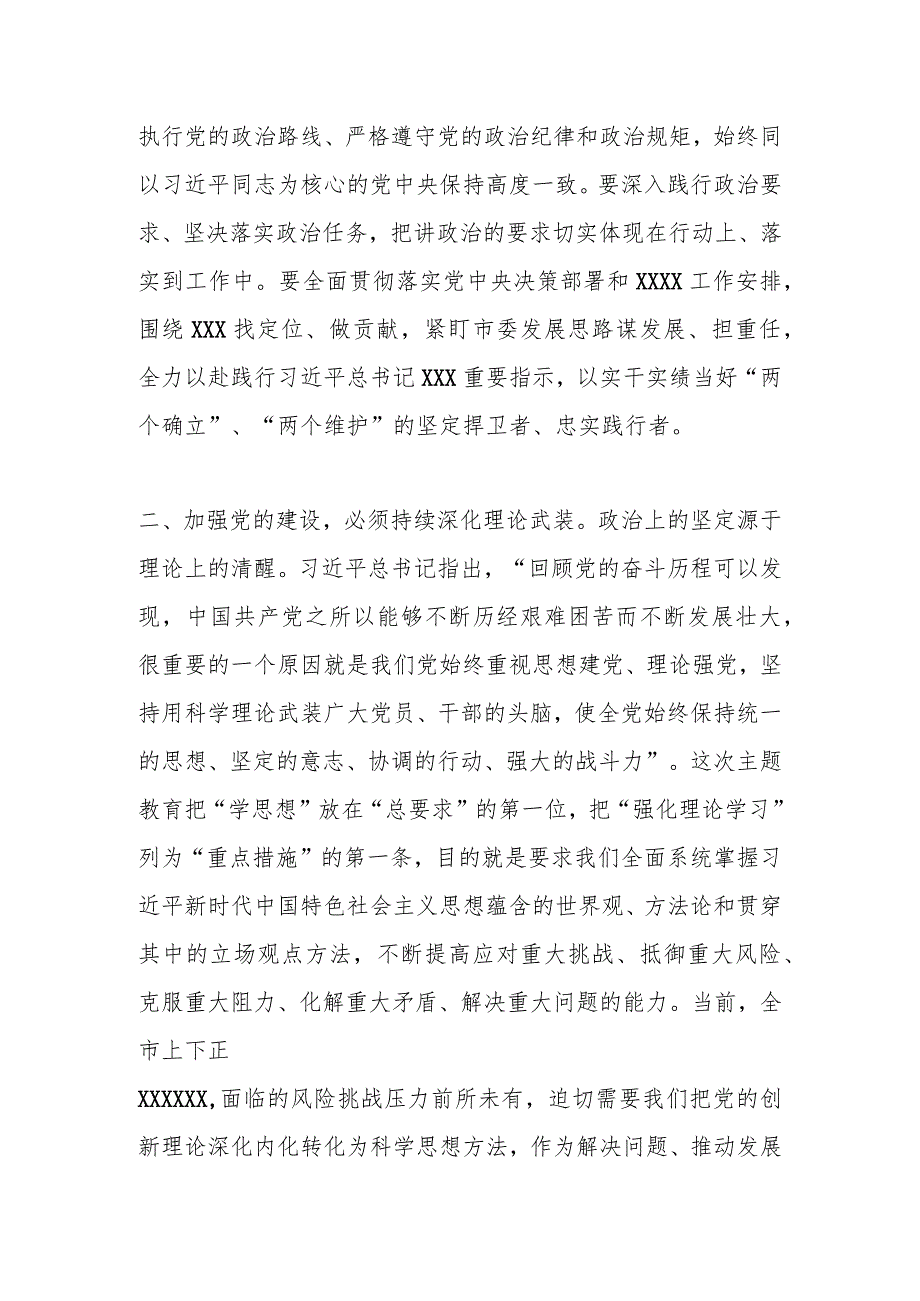 执行党的政治路线、严格遵守党的政治纪律和政治规矩，始终同
以习近平同志为核心的党中央保持高度一致。要深入践行政治要
求、坚决落实政治任务，把讲政治的要求切实体现在行动上、落
实到工作中。要全面贯彻落实党中央决策部署和 XXXX 工作安排，
围绕 XXX 找定位、做贡献，紧盯市委发展思路谋发展、担重任，
全力以赴践行习近平总书记 XXX 重要指示，以实干实绩当好“两
个确立”、“两个维护”的坚定捍卫者、忠实践行者。
二、加强党的建设，必须持续深化理论武装。政治上的坚定源于
理论上的清醒。习近平总书记指出，“回顾党的奋斗历程可以发
现，中国共产党之所以能够不断历经艰难困苦而不断发展壮大，
很重要的一个原因就是我们党始终重视思想建党、理论强党，坚
持用科学理论武装广大党员、干部的头脑，使全党始终保持统一
的思想、坚定的意志、协调的行动、强大的战斗力”。这次主题
教育把“学思想”放在“总要求”的第一位，把“强化理论学习”
列为“重点措施”的第一条，目的就是要求我们全面系统掌握习
近平新时代中国特色社会主义思想蕴含的世界观、方法论和贯穿
其中的立场观点方法，不断提高应对重大挑战、抵御重大风险、
克服重大阻力、化解重大矛盾、解决重大问题的能力。当前，全
市上下正
XXXXXX,面临的风险挑战压力前所未有，迫切需要我们把党的创
新理论深化内化转化为科学思想方法，作为解决问题、推动发展